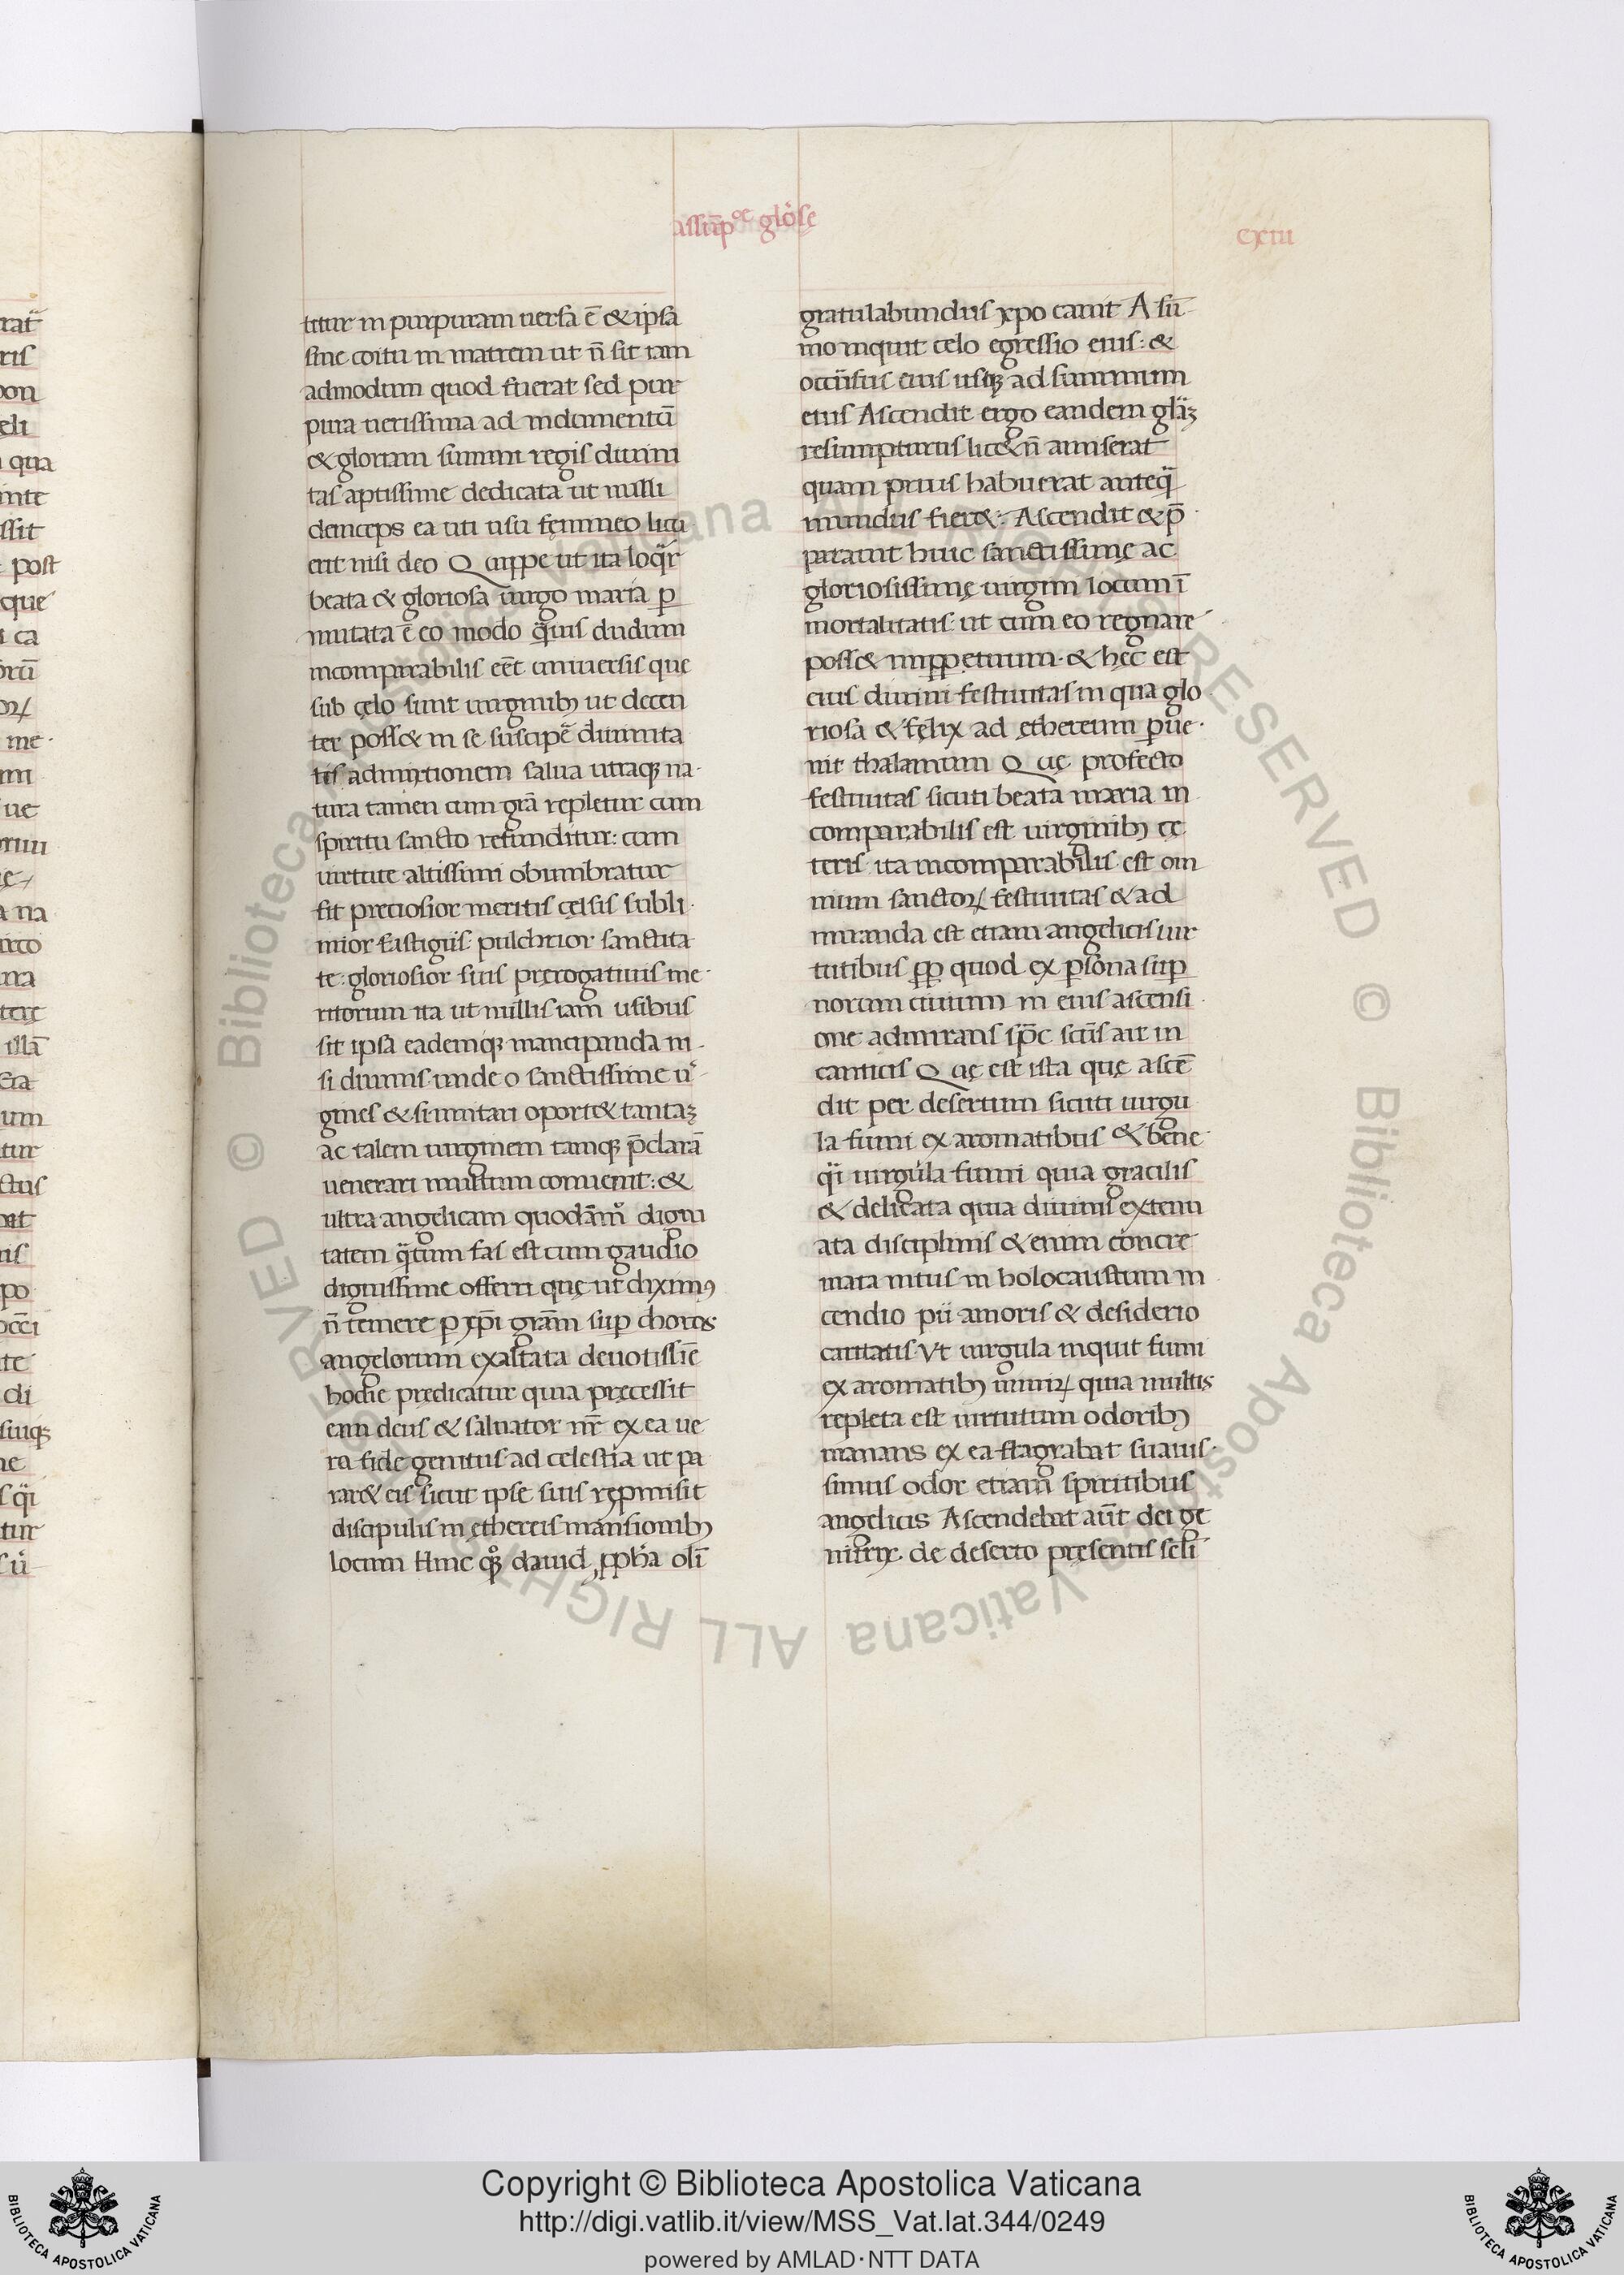 assũpᵒᵉ gloͣse
cxiii
titur in purpuram uersa ẽ & ipsa
sine coitu in matrem ut ñ sit tam
admodum quod fuerat sed pur
pura uerissima ad indumentũ
& gloriam summi regis diuini
tas aptissime dedicata ut nulli
deinceps ea uti usu fęmineo licu
erit nisi deo Quippe ut ita loqͣr
beata & gloriosa uirgo maria ꝑ
mutata ẽ eo modo qͣuis dudum
incomparabilis eẽt uniuersis que
sub cęlo sunt uirginibꝫ ut decen
ter poss& in se suscipẽ diuinita
tis admixtionem salua utraqꝫ na
tura tamen cum gr̃a repletur cum
spiritu sancto refunditur: cum
uirtute altissimi obumbratur
fit preciosior meritis cęlsis subli
mior fastigiis pulchrior sanctita
te: gloriosior suis pręrogatiuis me
ritorum ita ut nullis iam usibus
sit ipsa eademqꝫ mancipanda ni
si diuinis unde o sanctissime uͥ
gines & si imitari oport& tantaꝫ
ac talem uirginem tamqꝫ p̃clarã
uenerari multum conuenit: &
ultra angelicam quodãmͦ digni
tatem qͣtum fas est cum gaudio
dignissime offerri quę ut diximꝰ
ñ temere ꝑ xp̃i gr̃am suꝑ choros
angelorum exaltata deuotissĩe
hodie predicatur quia pręcessit
eam deus & saluator nr̃ ex ea ue
ra fide genitus ad celestia ut pa
rar& eis sicut ipse suis repmisit
discipulis in ęthereis mansionibꝫ
locum Hinc qͦꝫ dauid ꝓph̃a olĩ
gratulabundus xpo canit A sũ
mo inquit celo egressio eius: &
occursus eius usqꝫ ad summum
eius Ascendit ergo eandem gl̃aꝫ
resumpturus lic& ñ amiserat
quam prius habuerat anteqͣ
mundus fier&: Ascendit & p̃
parauit huic sanctissimę ac
gloriosissimę uirgini locum ĩ
mortalitatis: ut cum eo regnare
poss& imꝑpetuum· & hęc est
eius diuini festiuitas in qua glo
riosa & felix ad ęthereum ꝑue
nit thalamum Quę profecto
festiuitas sicuti beata maria in
comparabilis est uirginibꝫ cę
teris ita incomparabilis est om
nium sanctoꝝ festiuitas & ad
miranda est etiam angelicis uir
tutibus ꝓꝑ quod ex ꝑsona suꝑ
norum ciuium in eius ascensi
one admirans sp̃c scũs ait in
canticis Quę est ista quę ascẽ
dit per desertum sicuti uirgu
la fumi ex aromatibus & bene
qͣi uirgula fumi quia gracilis
& delicata quia diuinis extenu
ata disciplinis & enim concre
mata intus in holocaustum in
cendio pii amoris & desiderio
caritatis Vt uirgula inquit fumi
ex aromatibꝫ nimiꝝ quia multis
repleta est uirtutum odoribꝫ
manans ex ea flagrabat suauis
simus odor etiam spiritibus
angelicis Ascendebat aũt dei ge
nitrix de deserto pręsentis scl̃i
Copyright © Biblioteca Apostolica Vaticana
http://digi.vatlib.it/view/MSS_Vat.lat.344/0249
powered by AMLAD·NTT DATA